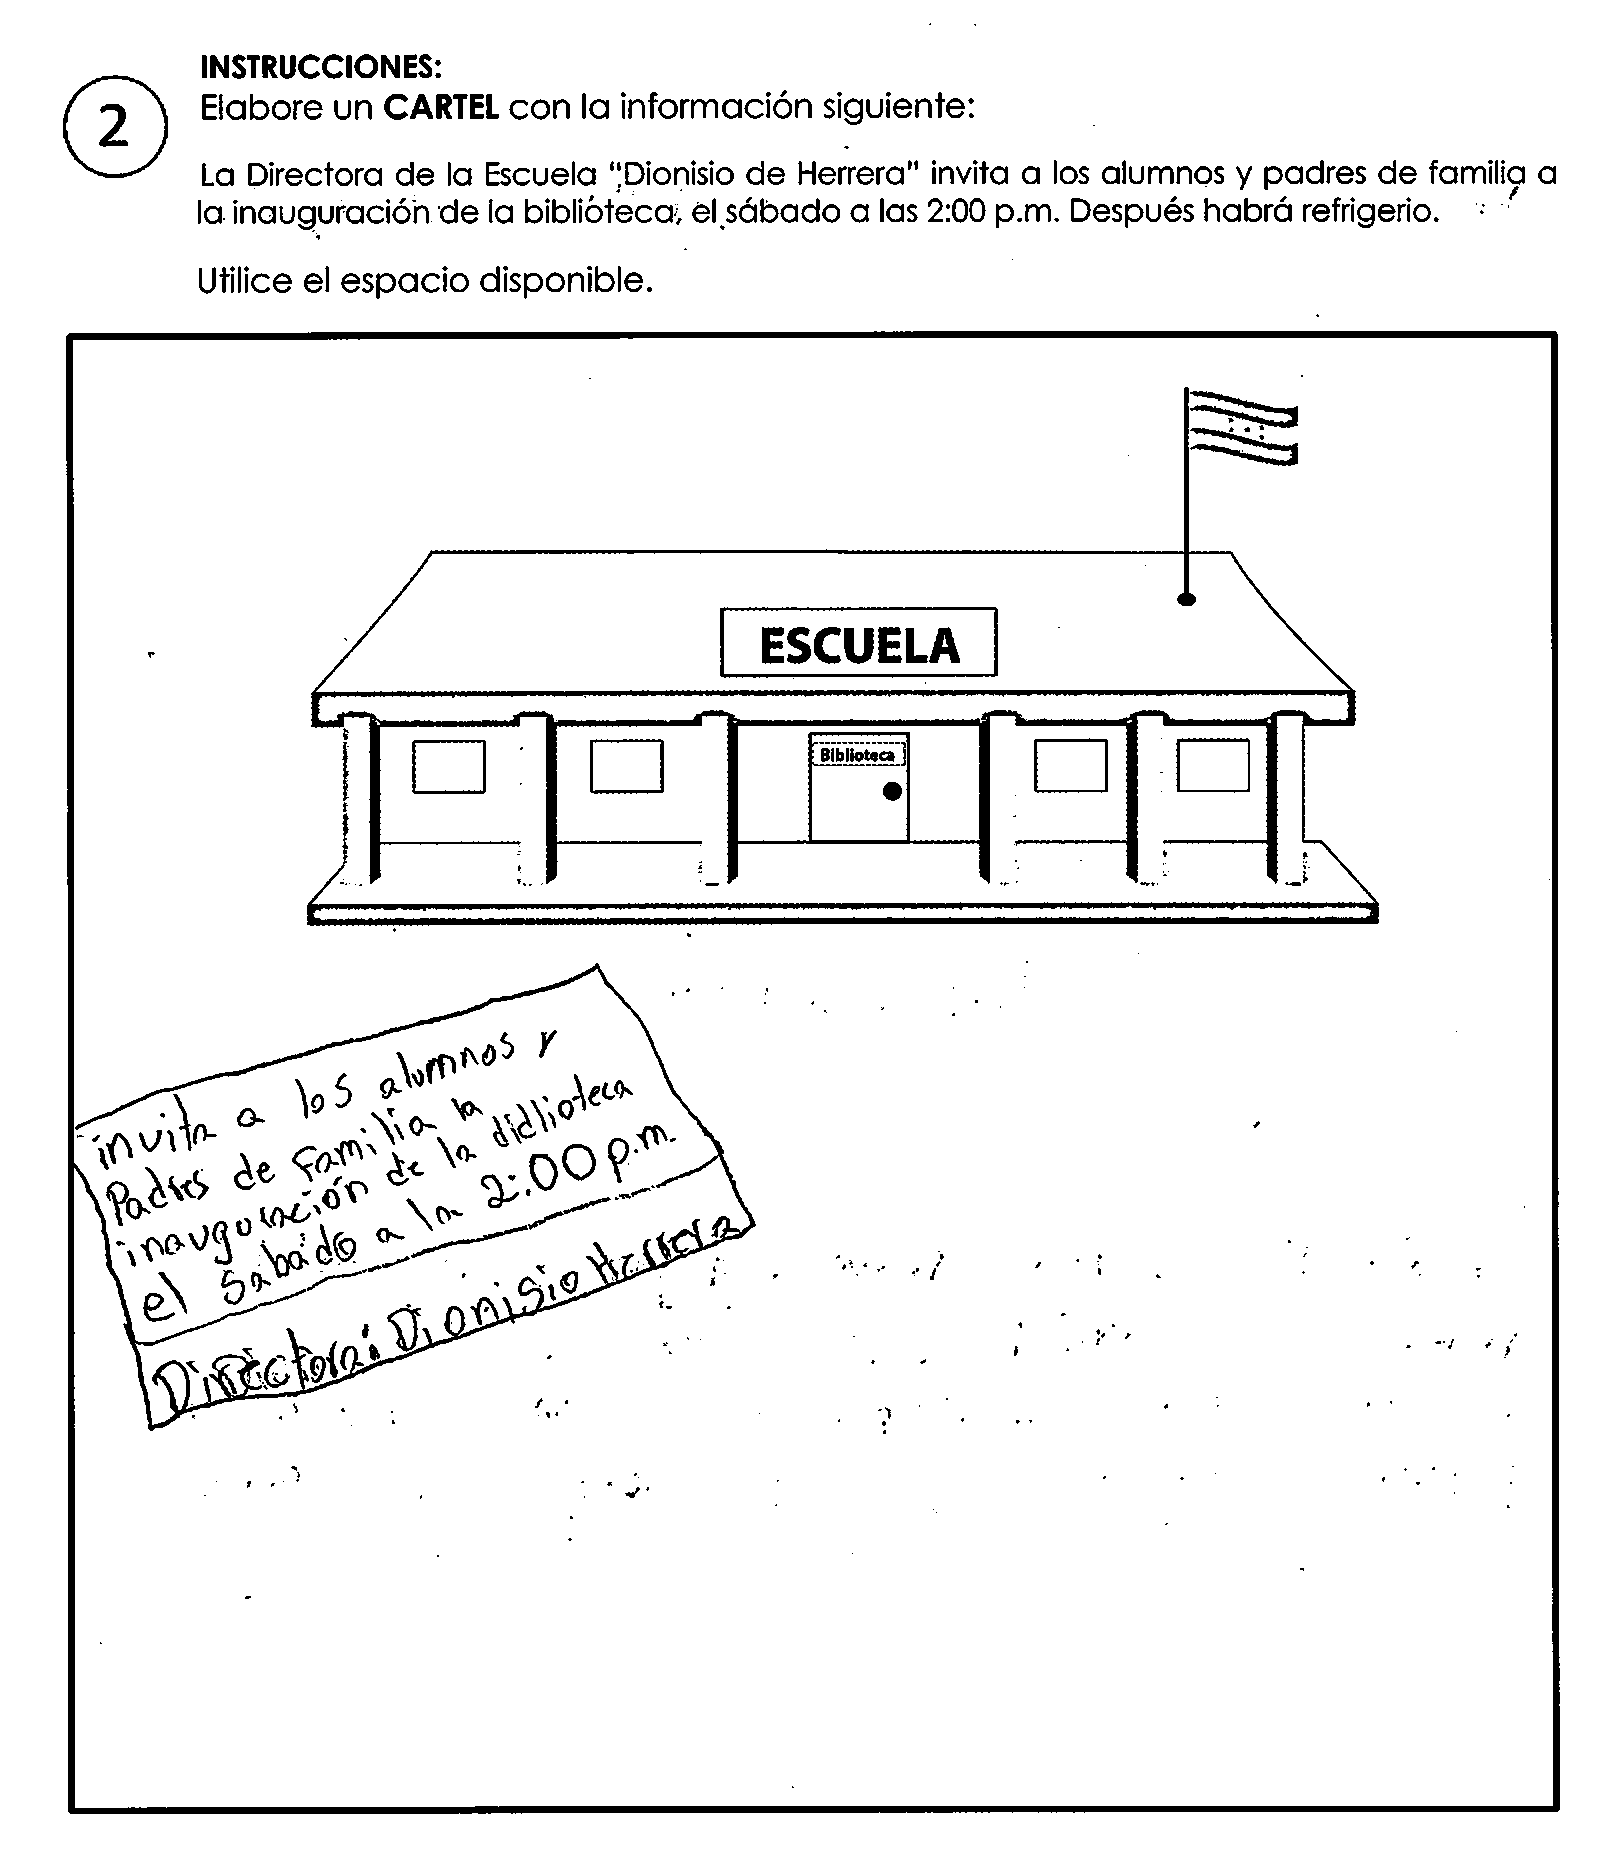 INSTRUCCIONES:
2
Elabore un CARTEL con la información siguiente:
La Directora de la Escuela "Dionisio de Herrera" invita a los alumnos y padres de familia a
la inauguración de la biblioteca, el sábado a las 2:00 p.m. Después habrá refrigerio.
Utilice el espacio disponible.
ESCUELA
Biblioteca
invita a los alumnos y
Padres de familia la
inauguración de la didlioteca
el Sabado a la 2:00 p.m.
Directora: Dionisio Herrera